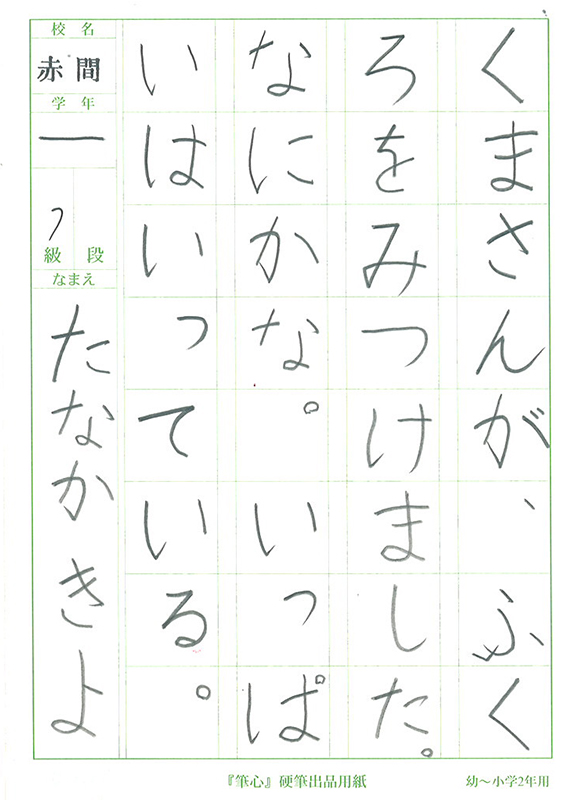 くまさんが、ふく
ろをみつけました。
なにかな。いっぱ
いはいっている。
校名
赤間
学年
一
級段
なまえ
たなかきよ
『筆心』硬筆出品用紙
幼～小学2年用